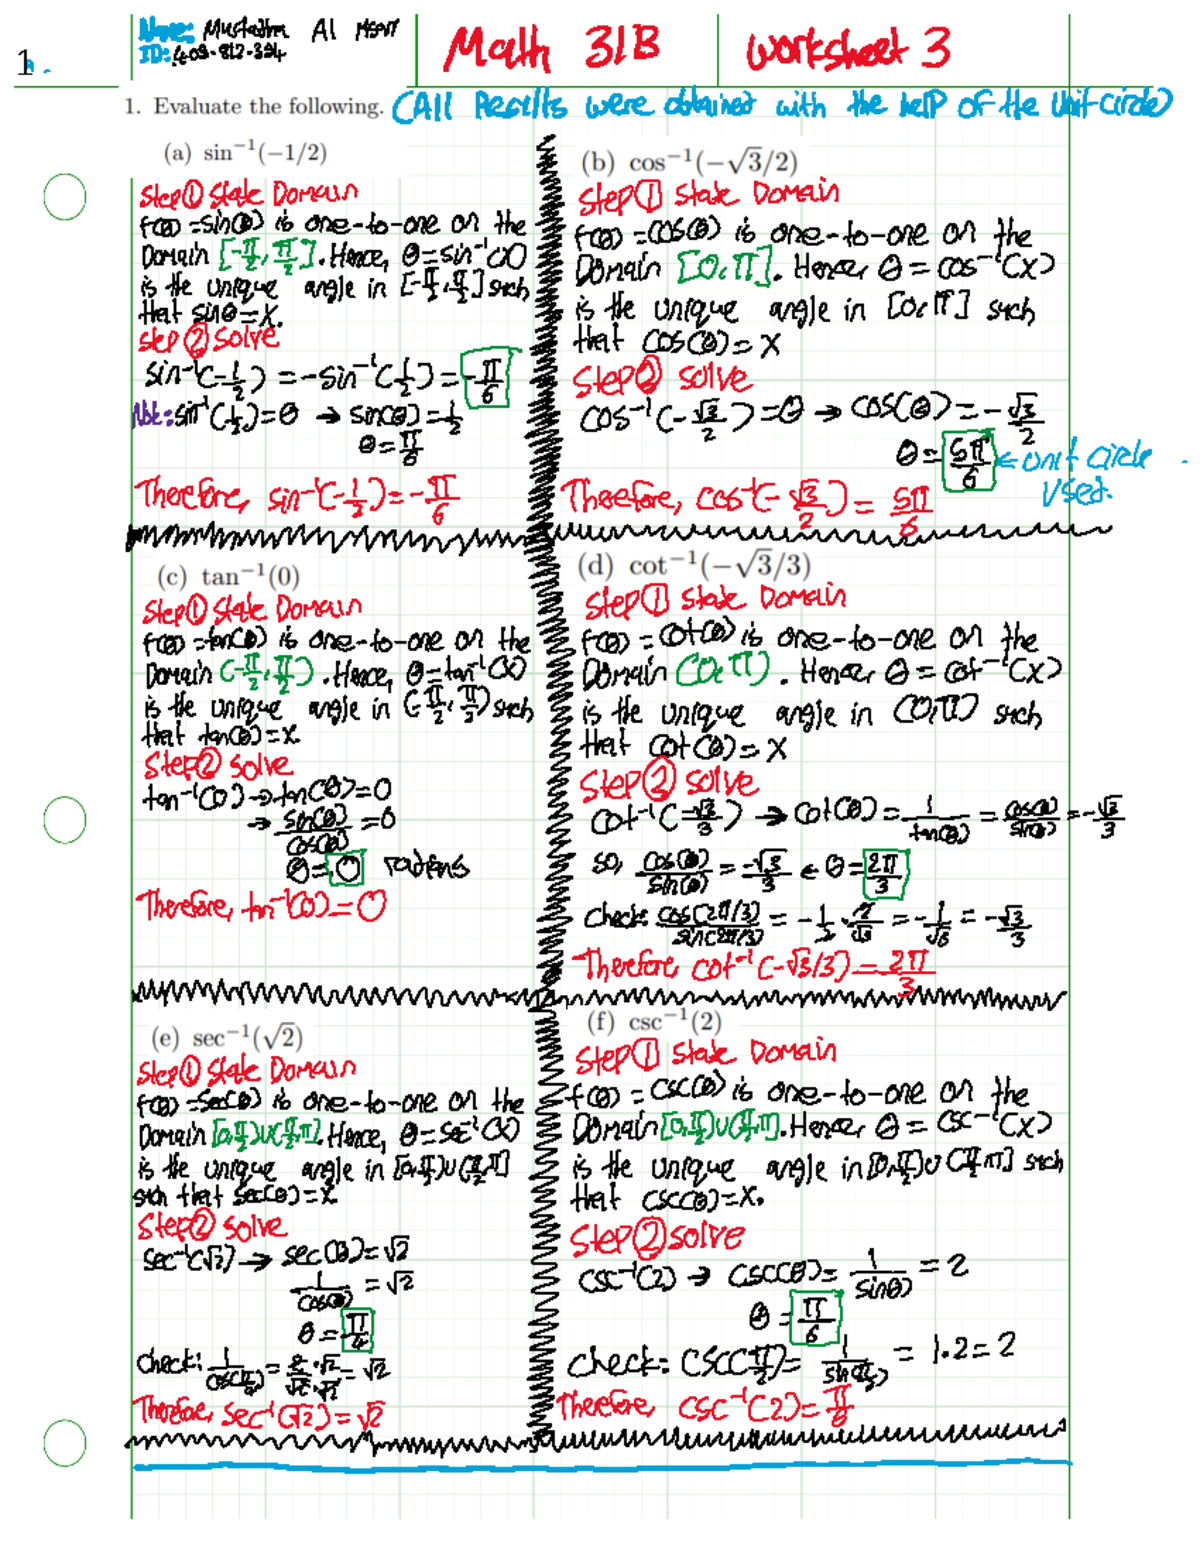 1.
Name: Mustathm Al Msavi
ID: 409-812-334
Math 31B
Worksheet 3
1. Evaluate the following. (All Results were obtained with the help of the Unit circle)
(a) sin⁻¹(−1/2)
Step ① State Domain
f(θ) = sin(θ) is one-to-one on the
Domain [-π/2, π/2]. Hence, θ = sin⁻¹(x)
is the unique angle in [-π/2, π/2] such
that sinθ = x.
Step ② Solve
sin⁻¹(-1/2) = -sin⁻¹(1/2) = -π/6
Note: sin⁻¹(1/2) = θ → sin(θ) = 1/2
θ = π/6
Therefore, sin⁻¹(-1/2) = -π/6
(b) cos⁻¹(−√3/2)
Step ① State Domain
f(θ) = cos(θ) is one-to-one on the
Domain [0, π]. Hence, θ = cos⁻¹(x)
is the unique angle in [0, π] such
that cos(θ) = x
Step ② solve
cos⁻¹(-√3/2) = θ → cos(θ) = -√3/2
θ = 5π/6 ← unit circle
Used.
Therefore, cos⁻¹(-√3/2) = 5π/6
(c) tan⁻¹(0)
Step ① State Domain
f(θ) = tan(θ) is one-to-one on the
Domain (-π/2, π/2). Hence, θ = tan⁻¹(x)
is the unique angle in (-π/2, π/2) such
that tan(θ) = x.
Step ② Solve
tan⁻¹(0) → tan(θ) = 0
→ sin(θ)/cos(θ) = 0
θ = 0 radians
Therefore, tan⁻¹(0) = 0
(d) cot⁻¹(−√3/3)
Step ① State Domain
f(θ) = cot(θ) is one-to-one on the
Domain (0, π). Hence, θ = cot⁻¹(x)
is the unique angle in (0, π) such
that cot(θ) = x
Step ② solve
cot⁻¹(-√3/3) → cot(θ) = 1/tan(θ) = cos(θ)/sin(θ) = -√3/3
so, cos(θ)/sin(θ) = -√3/3 ← θ = 2π/3
Check: cos(2π/3)/sin(2π/3) = -1/2 · 2/√3 = -1/√3 = -√3/3
Therefore cot⁻¹(-√3/3) = 2π/3
(e) sec⁻¹(√2)
Step ① State Domain
f(θ) = sec(θ) is one-to-one on the
Domain [0, π/2)∪(π/2, π]. Hence, θ = sec⁻¹(x)
is the unique angle in [0, π/2)∪(π/2, π]
such that sec(θ) = x.
Step ② Solve
sec⁻¹(√2) → sec(θ) = √2
1/cos(θ) = √2
θ = π/4
Check: 1/cos(π/4) = 2/√2 · √2/√2 = √2
Therefore, sec⁻¹(√2) = √2
(f) csc⁻¹(2)
Step ① State Domain
f(θ) = csc(θ) is one-to-one on the
Domain [0, π/2)∪(π/2, π]. Hence, θ = csc⁻¹(x)
is the unique angle in [0, π/2)∪(π/2, π] such
that csc(θ) = x.
Step ② solve
csc⁻¹(2) → csc(θ) = 1/sin(θ) = 2
θ = π/6
Check: csc(π/2) = = 1·2 = 2
Therefore, csc⁻¹(2) = π/6